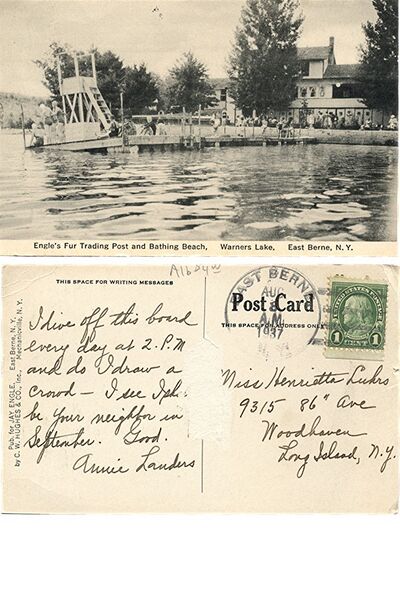 Engle's Fur Trading Post and Bathing Beach, Warners Lake, East Berne, N.Y.
THIS SPACE FOR WRITING MESSAGES
Post Card
THIS SPACE FOR ADDRESS ONLY
EAST BERNE
AUG
A.M.
1937
UNITED STATES POSTAGE
1 CENT 1
Pub. for JAY ENGLE, East Berne, N. Y.
by C. W. HUGHES & CO., Inc., Mechanicville, N. Y.
I dive off this board
every day at 2. P.M
and do I draw a
crowd — I see I'll
be your neighbor in
September. Good.
Annie Landers
Miss Henrietta Luhrs
9315 86" Ave
Woodhaven
Long Island, N.Y.